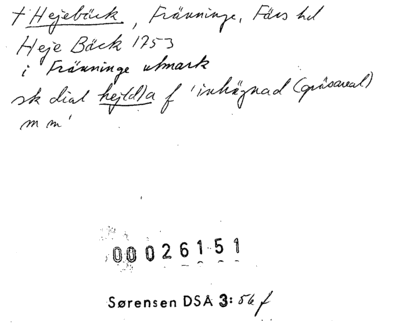 † Hejebäck, Fränninge, Färs hd
Heje Bäck 1753
i Fränninge utmark
sk dial hej(d)a f 'inhägnad (gräsareal)
m m'
00026151
Sørensen DSA 3: 56 f